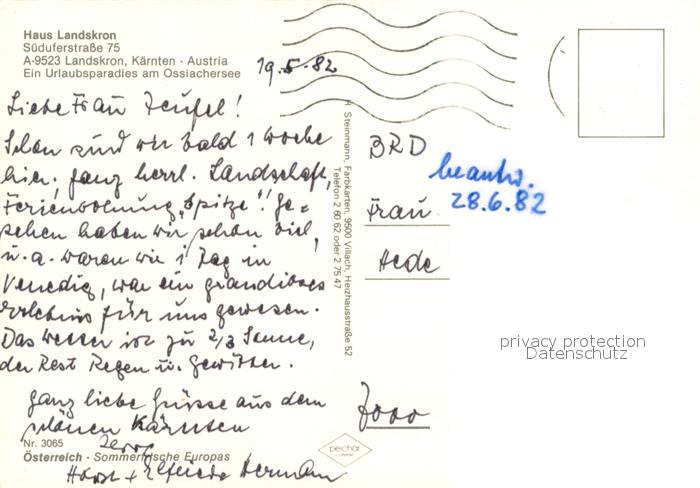 Haus Landskron
Süduferstraße 75
A-9523 Landskron, Kärnten - Austria
Ein Urlaubsparadies am Ossiachersee
19.5.82
Liebe Frau Teufel!
Schon sind wir bald 1 Woche
hier, ganz herrl. Landschaft,
Ferienwohnung "Spitze"! Ge-
sehen haben wir schon viel,
u. a. waren wir 1 Tag in
Venedig, war ein grandioses
Erlebnis für uns gewesen.
Das Wetter ist zu 2/3 Sonne,
der Rest Regen u. Gewitter.
Ganz liebe Grüsse aus dem
schönen Kärnten
Horst + Elfriede Hermann
Nr. 3065
Österreich - Sommerfrische Europas
H. Steinmann, Farbkarten, 9500 Villach, Heizhausstraße 52
Telefon 2 60 62 oder 2 75 47
pechar
BRD
beantw.
28.6.82
Frau
Hede
7000
privacy protection
Datenschutz